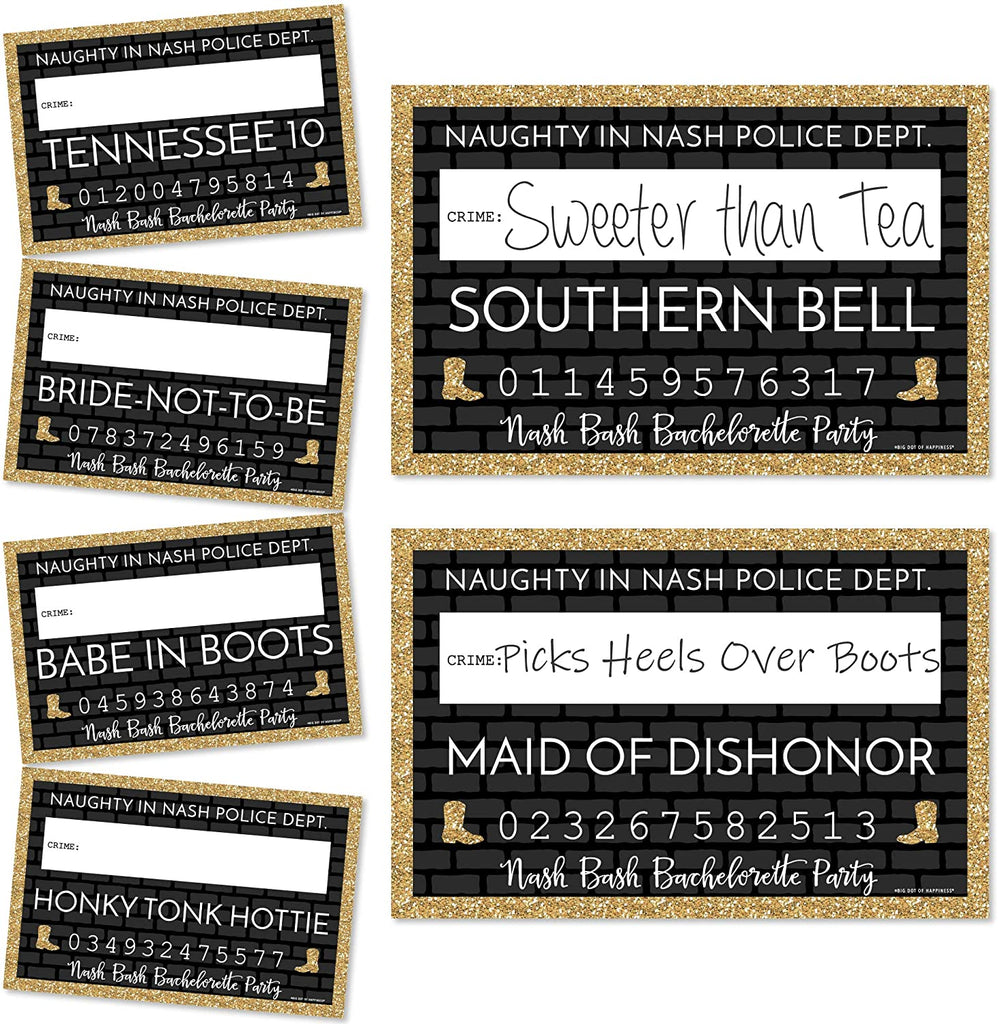 NAUGHTY IN NASH POLICE DEPT.
CRIME:
TENNESSEE 10
012004795814
Nash Bash Bachelorette Party
*BIG DOT OF HAPPINESS*
NAUGHTY IN NASH POLICE DEPT.
CRIME:
BRIDE-NOT-TO-BE
078372496159
Nash Bash Bachelorette Party
*BIG DOT OF HAPPINESS*
NAUGHTY IN NASH POLICE DEPT.
CRIME:
BABE IN BOOTS
045938643874
Nash Bash Bachelorette Party
*BIG DOT OF HAPPINESS*
NAUGHTY IN NASH POLICE DEPT.
CRIME:
HONKY TONK HOTTIE
034932475577
Nash Bash Bachelorette Party
*BIG DOT OF HAPPINESS*
NAUGHTY IN NASH POLICE DEPT.
CRIME: Sweeter than Tea
SOUTHERN BELL
011459576317
Nash Bash Bachelorette Party
*BIG DOT OF HAPPINESS*
NAUGHTY IN NASH POLICE DEPT.
CRIME: Picks Heels Over Boots
MAID OF DISHONOR
023267582513
Nash Bash Bachelorette Party
*BIG DOT OF HAPPINESS*